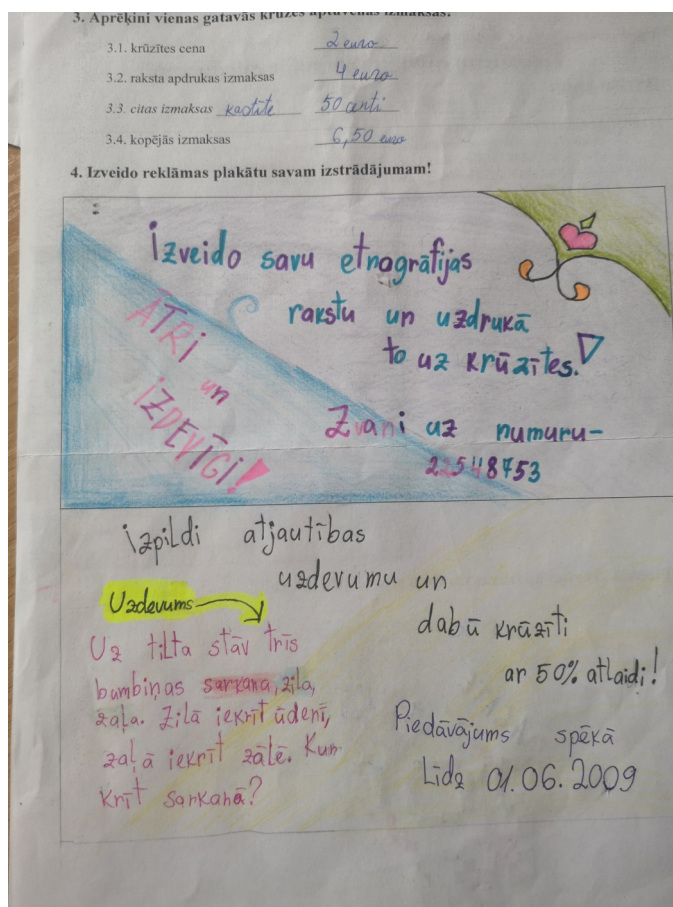 3. Aprēķini vienas gatavās krūzes aptuvenās izmaksas!
3.1. krūzītes cena 2 euro
3.2. raksta apdrukas izmaksas 4 euro
3.3. citas izmaksas kastīte 50 centi
3.4. kopējās izmaksas 6,50 euro
4. Izveido reklāmas plakātu savam izstrādājumam!
Izveido savu etnogrāfijas
rakstu un uzdrukā
to uz krūzītes!
ĀTRI
un
IZDEVĪGI!
Zvani uz numuru-
22548753
izpildi atjautības
uzdevumu un
dabū krūzīti
ar 50% atlaidi!
Uzdevums
Uz tilta stāv trīs
bumbiņas sarkana, zila,
zaļa. Zilā iekrīt ūdenī,
zaļā iekrīt zālē. Kur
krīt sarkanā?
Piedāvājums spēkā
Līdz 01.06.2009